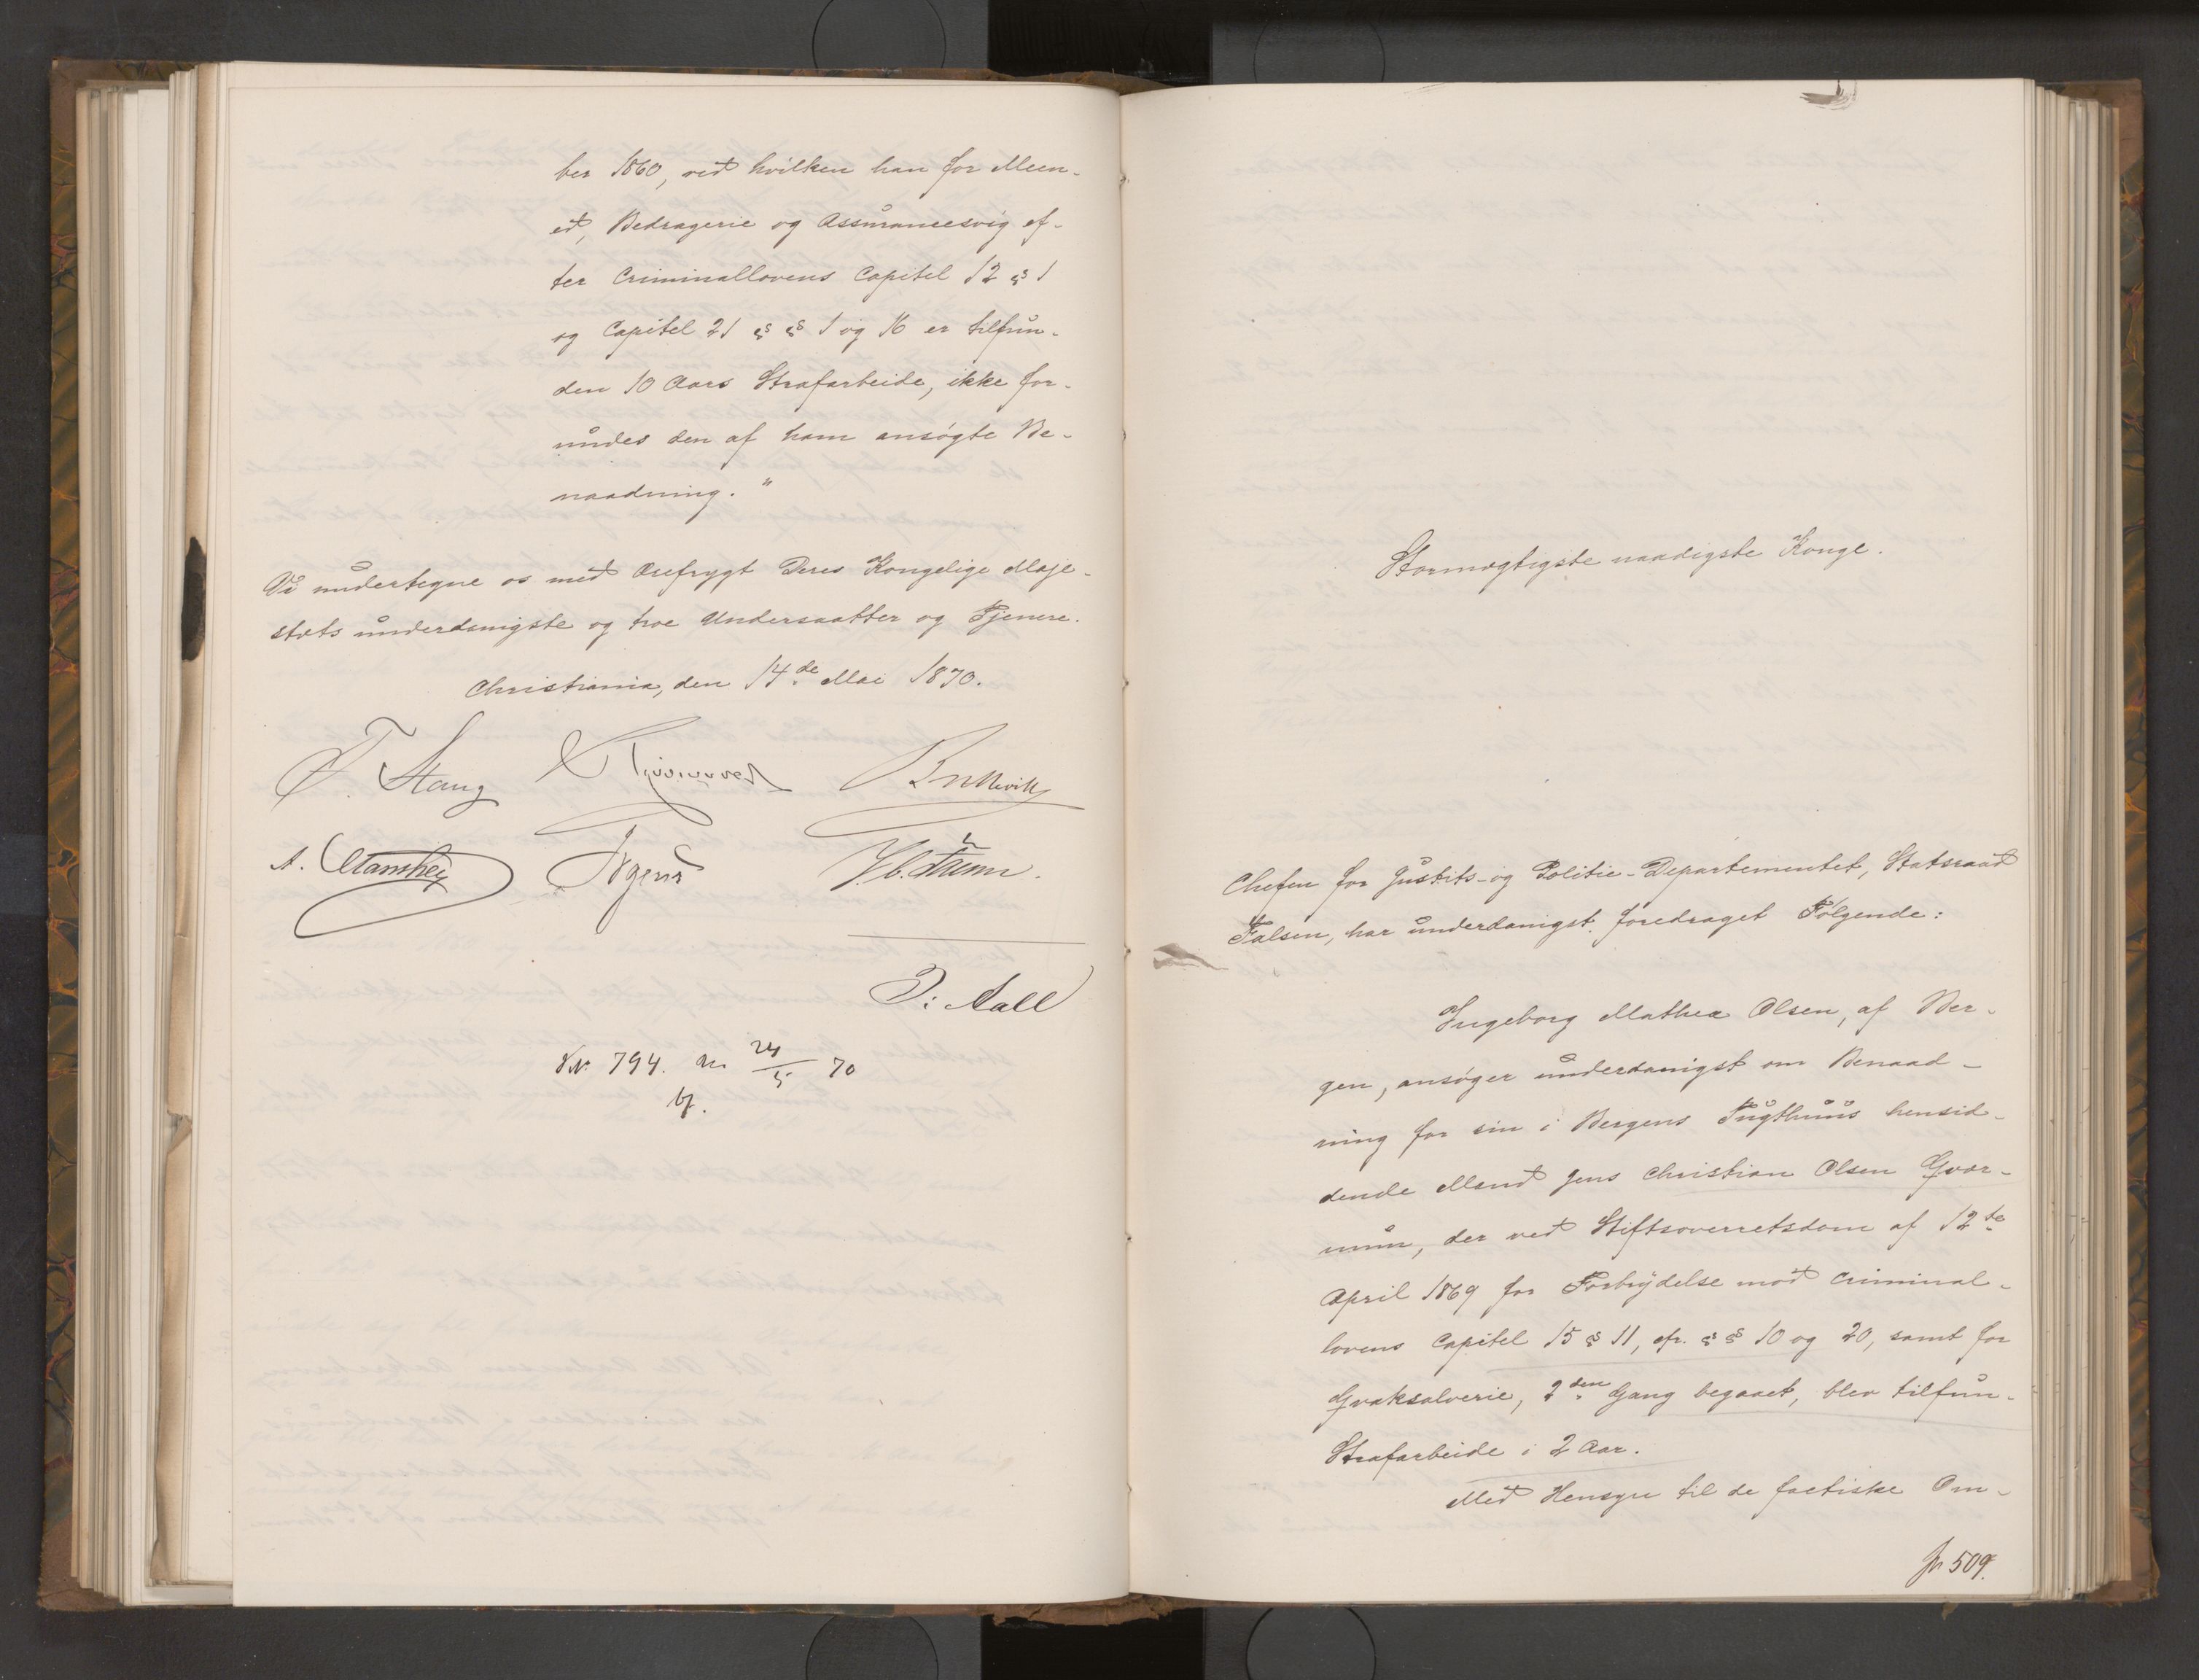 ber 1860, ved hvilken han for Meen-
ed, Bedragerie og Assuranceesvig ef-
ter Criminallovens Capitel 12 § 1
og Capitel 21 § § 1 og 16 er tilfun-
den 10 Aars Strafarbeide, ikke for-
undes den af ham ansøgte Be-
naadning."
Vi undertegne os med Ærefrygt Deres Kongelige Maje-
stæts underdanigste og troe Undersaatter og Tjenere.
Christiania, den 14de Mai 1870.
F. Stang
A. Manthey Irgens
O: Aall
794. 24/5 70
Stormægtigste naadigste Konge.
Chefen for Justits- og Politie-Departementet, Statsraad
Falsen, har underdanigst foredraget Følgende:
Ingeborg Mathea Olsen, af Ber-
gen, ansøger underdanigst om Benaad-
ning for sin i Bergens Tugthuus hensid-
dende Mand Jens Christian Olsen Qvar-
num, der ved Stiftsoverretsdom af 12te
April 1869 for Forbrydelse mod Criminal-
lovens Capitel 15 § 11, cfr. § § 10 og 20, samt for
Qvaksalverie, 2den Gang begaaet, blev tilfun-
Strafarbeide i 2 Aar.
Med Hensyn til de factiske Om-
509.